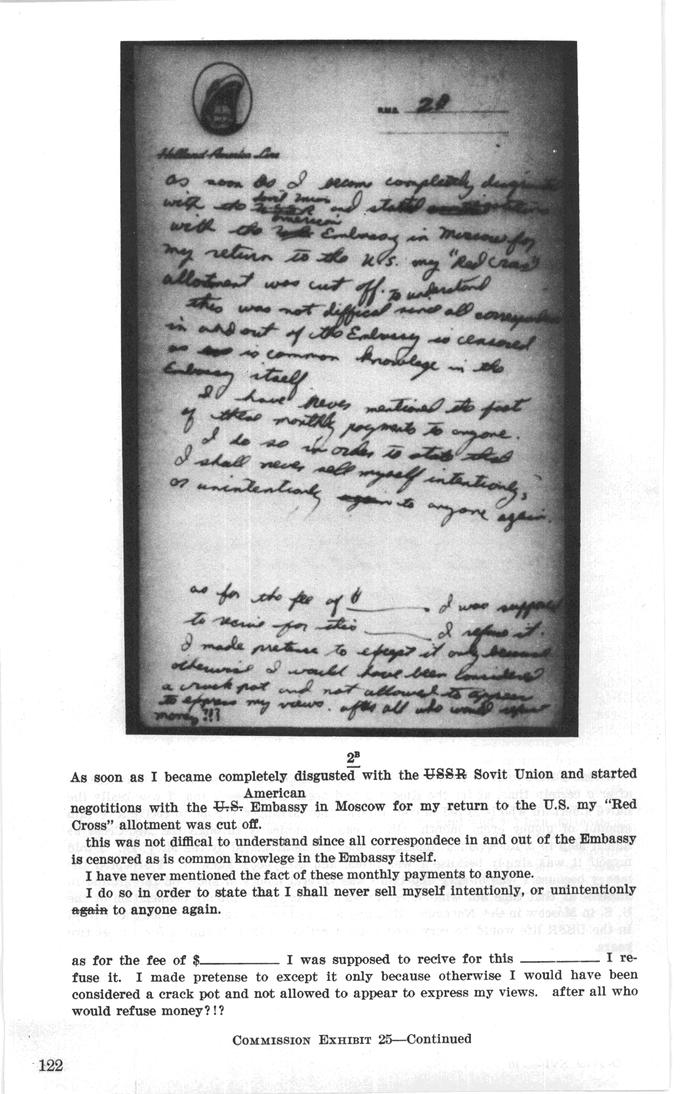 R.M.S. 2B
Holland-America Line
as soon as I became completely disgusted
Sovit Union
with the USSR and started
American
with the U.S. Embassy in Moscow for
my return to the U.S. my "Red Cross"
allotment was cut off. to understand
this was not diffical since all correspondece
in and out of the Embassy is censored
as is common knowlege in the
Embassy itself
I have never mentioned the fact
of these monthly payments to anyone.
I do so in order to state that
I shall never sell myself intentionly,
or unintentionly again to anyone again.
as for the fee of $ ______ . I was supposed
to recive for this ______ I refuse it.
I made pretense to except it only because
otherwise I would have been considered
a crack pot and not allowed to appear
to express my views. after all who would refuse
money?!?
2B
As soon as I became completely disgusted with the USSR Sovit Union and started
American
negotitions with the U.S. Embassy in Moscow for my return to the U.S. my "Red
Cross" allotment was cut off.
this was not diffical to understand since all correspondece in and out of the Embassy
is censored as is common knowlege in the Embassy itself.
I have never mentioned the fact of these monthly payments to anyone.
I do so in order to state that I shall never sell myself intentionly, or unintentionly
again to anyone again.
as for the fee of $____________ I was supposed to recive for this ____________ I re-
fuse it. I made pretense to except it only because otherwise I would have been
considered a crack pot and not allowed to appear to express my views. after all who
would refuse money?!?
COMMISSION EXHIBIT 25—Continued
122